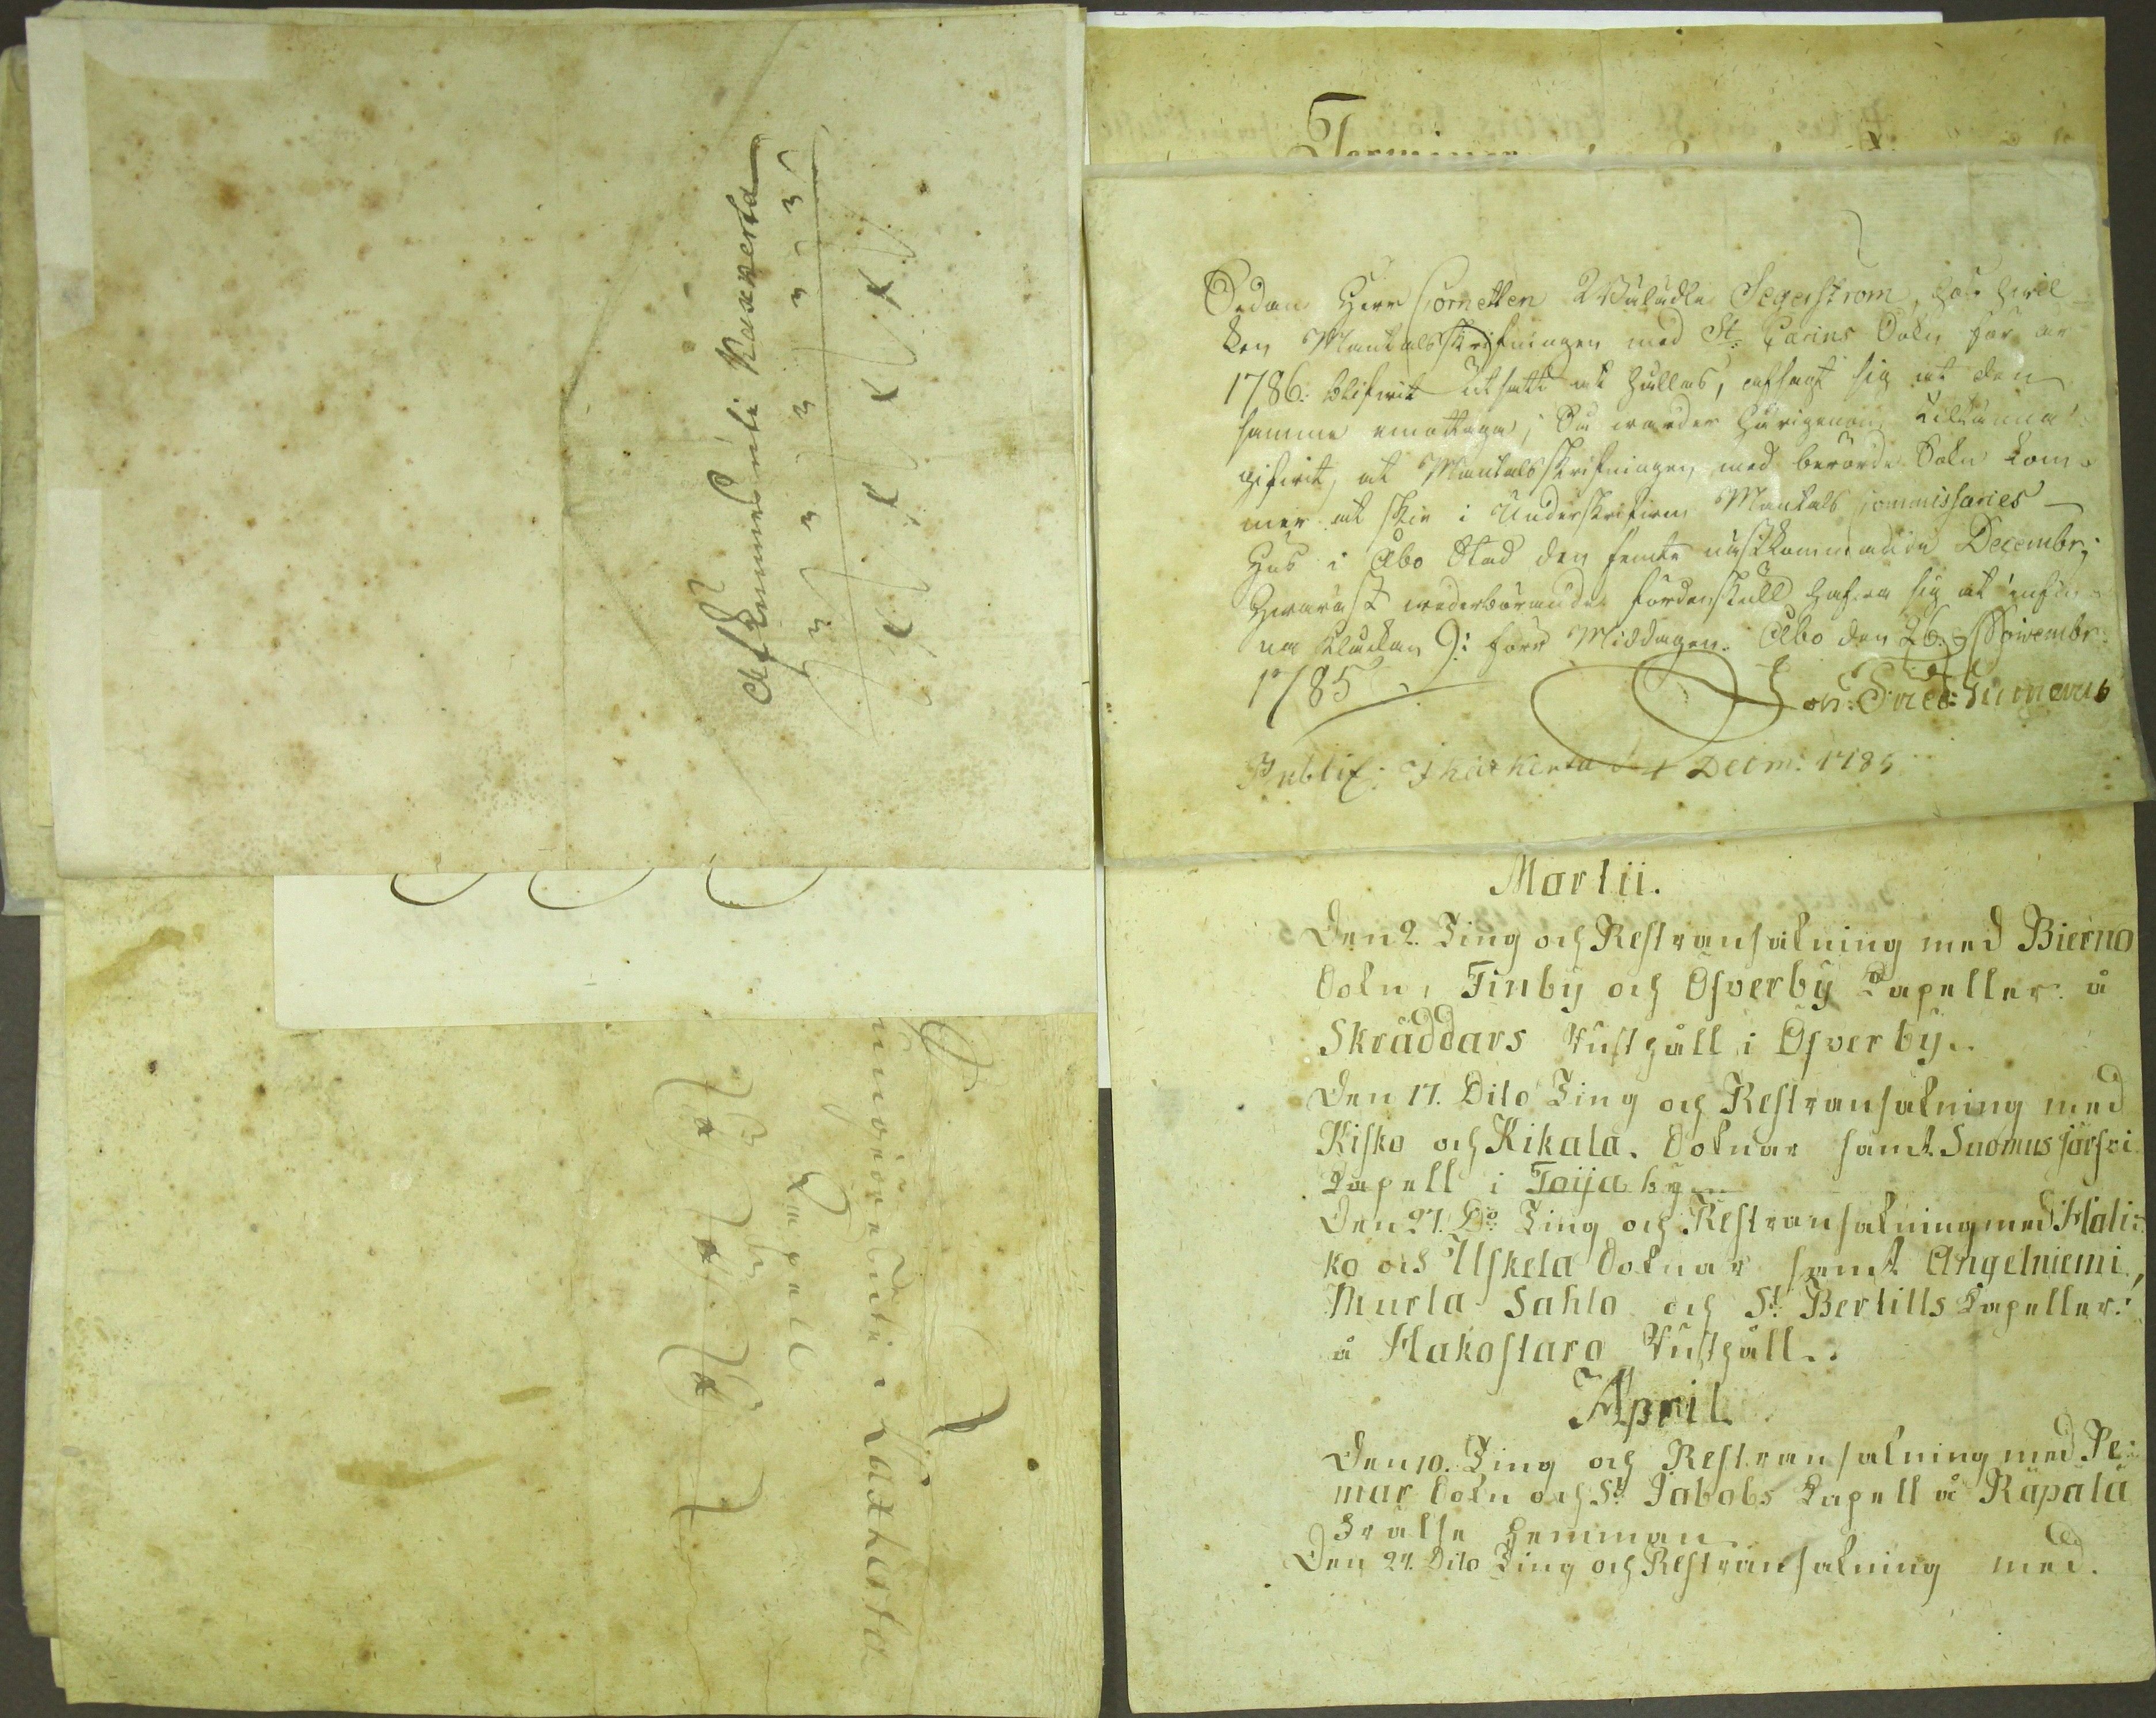 Afkunnes uti Kaxkerta
ngörande i Kaxkerta
Capell
Terminer
Sedan Herr Cornetten Wäladle Segerström, hos hvil
ken Mantalsskrifningen med St. Carins Sokn för år
1786. blifvit utsatt at hållas, afsagt sig at den
samma emottaga; Så warder härigenom tilkänna
gifvit, at Mantalsskrifningen med berörde Sokn kom
mer at skie i Underskrifven Mantals Commissaries
Hus i Åbo Stad den femte nästkommande Decembr;
Hwarast wederbörande fördenskull hafva sig at infin
na Kluckan 9: före Middagen. Åbo den 26. Novembr.
1785
Publi: i Kaxkerta d 4 Decm: 1785
Martii.
Den 2. Ting och Restransakning med Bierno
Sokn, Finby och Ofverby Capeller å
Skräddars Rusthåll i Ofverby.
Den 17. Dito Ting och Restransakning med
Kisko och Kikala. Soknar samt Suomusjärfvi
Capell i Toija by
Den 27. Do Ting och Restransakning med Hali-
ko och Uskela Soknar samt Angelniemi,
Murla Sahlo och St. Bertills Capeller.
å Hakostaro Rusthåll.
April
Den 10. Ting och Restransakning med Pe-
mar Sokn och St. Jakobs Capell å Räpälä
Frälse Hemman
Den 24. Dito Ting och Restransakning med.